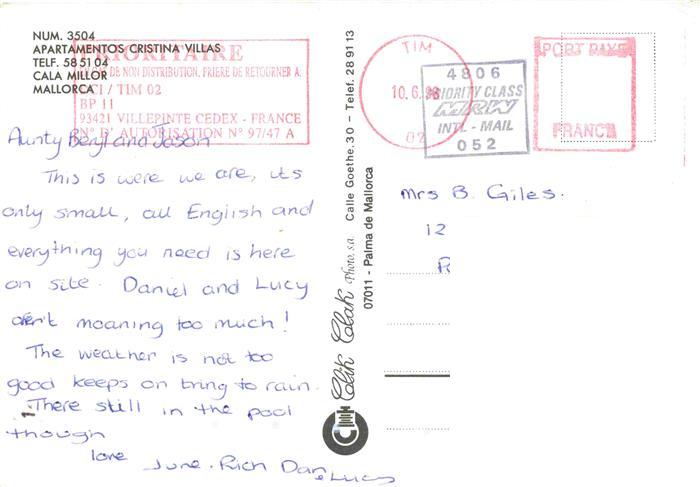 NUM. 3504
APARTAMENTOS CRISTINA VILLAS
TELF. 58 51 04
CALA MILLOR
MALLORCA
PRIORITAIRE
DE NON DISTRIBUTION, PRIERE DE RETOURNER A.
CI / TIM 02
BP 11
93421 VILLEPINTE CEDEX - FRANCE
N° D'AUTORISATION N° 97/47 A
Aunty Beryl and Jason
This is were we are, its
only small, all English and
everything you need is here
on site. Daniel and Lucy
aren't moaning too much!
The weather is not too
good keeps on tring to rain.
There still in the pool
though
love
June. Rich Dan & Lucy
Clik Clak Photo, s.a. Calle Goethe, 30 – Telef. 28 91 13
07011 - Palma de Mallorca
TIM
10.6.98
02
4806
PRIORITY CLASS
MRW
INTL - MAIL
052
PORT PAYE
FRANCE
Mrs B. Giles.
12